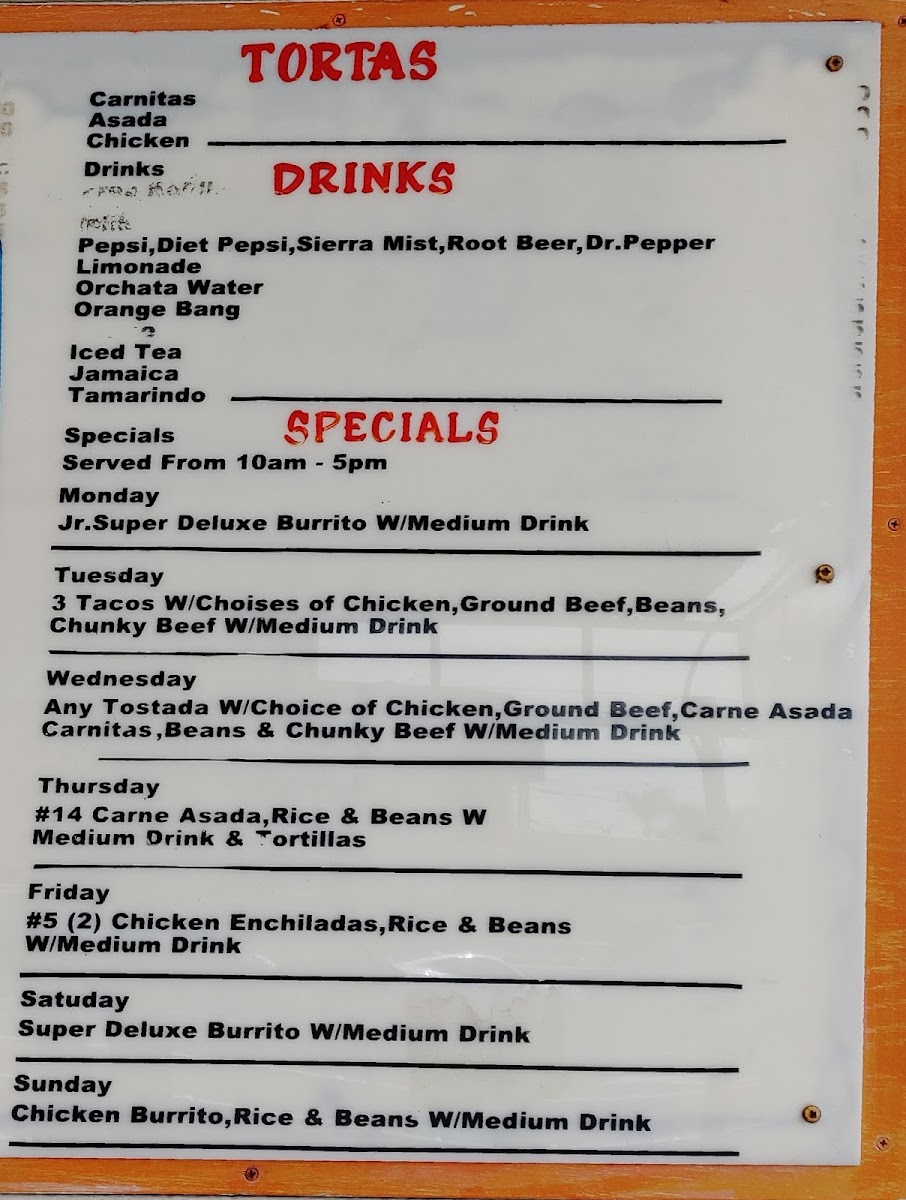 TORTAS
Carnitas
Asada
Chicken
Drinks
DRINKS
Pepsi,Diet Pepsi,Sierra Mist,Root Beer,Dr.Pepper
Limonade
Orchata Water
Orange Bang
Iced Tea
Jamaica
Tamarindo
SPECIALS
Specials
Served From 10am - 5pm
Monday
Jr.Super Deluxe Burrito W/Medium Drink
Tuesday
3 Tacos W/Choises of Chicken,Ground Beef,Beans,
Chunky Beef W/Medium Drink
Wednesday
Any Tostada W/Choice of Chicken,Ground Beef,Carne Asada
Carnitas,Beans & Chunky Beef W/Medium Drink
Thursday
#14 Carne Asada,Rice & Beans W
Medium Drink & Tortillas
Friday
#5 (2) Chicken Enchiladas,Rice & Beans
W/Medium Drink
Satuday
Super Deluxe Burrito W/Medium Drink
Sunday
Chicken Burrito,Rice & Beans W/Medium Drink